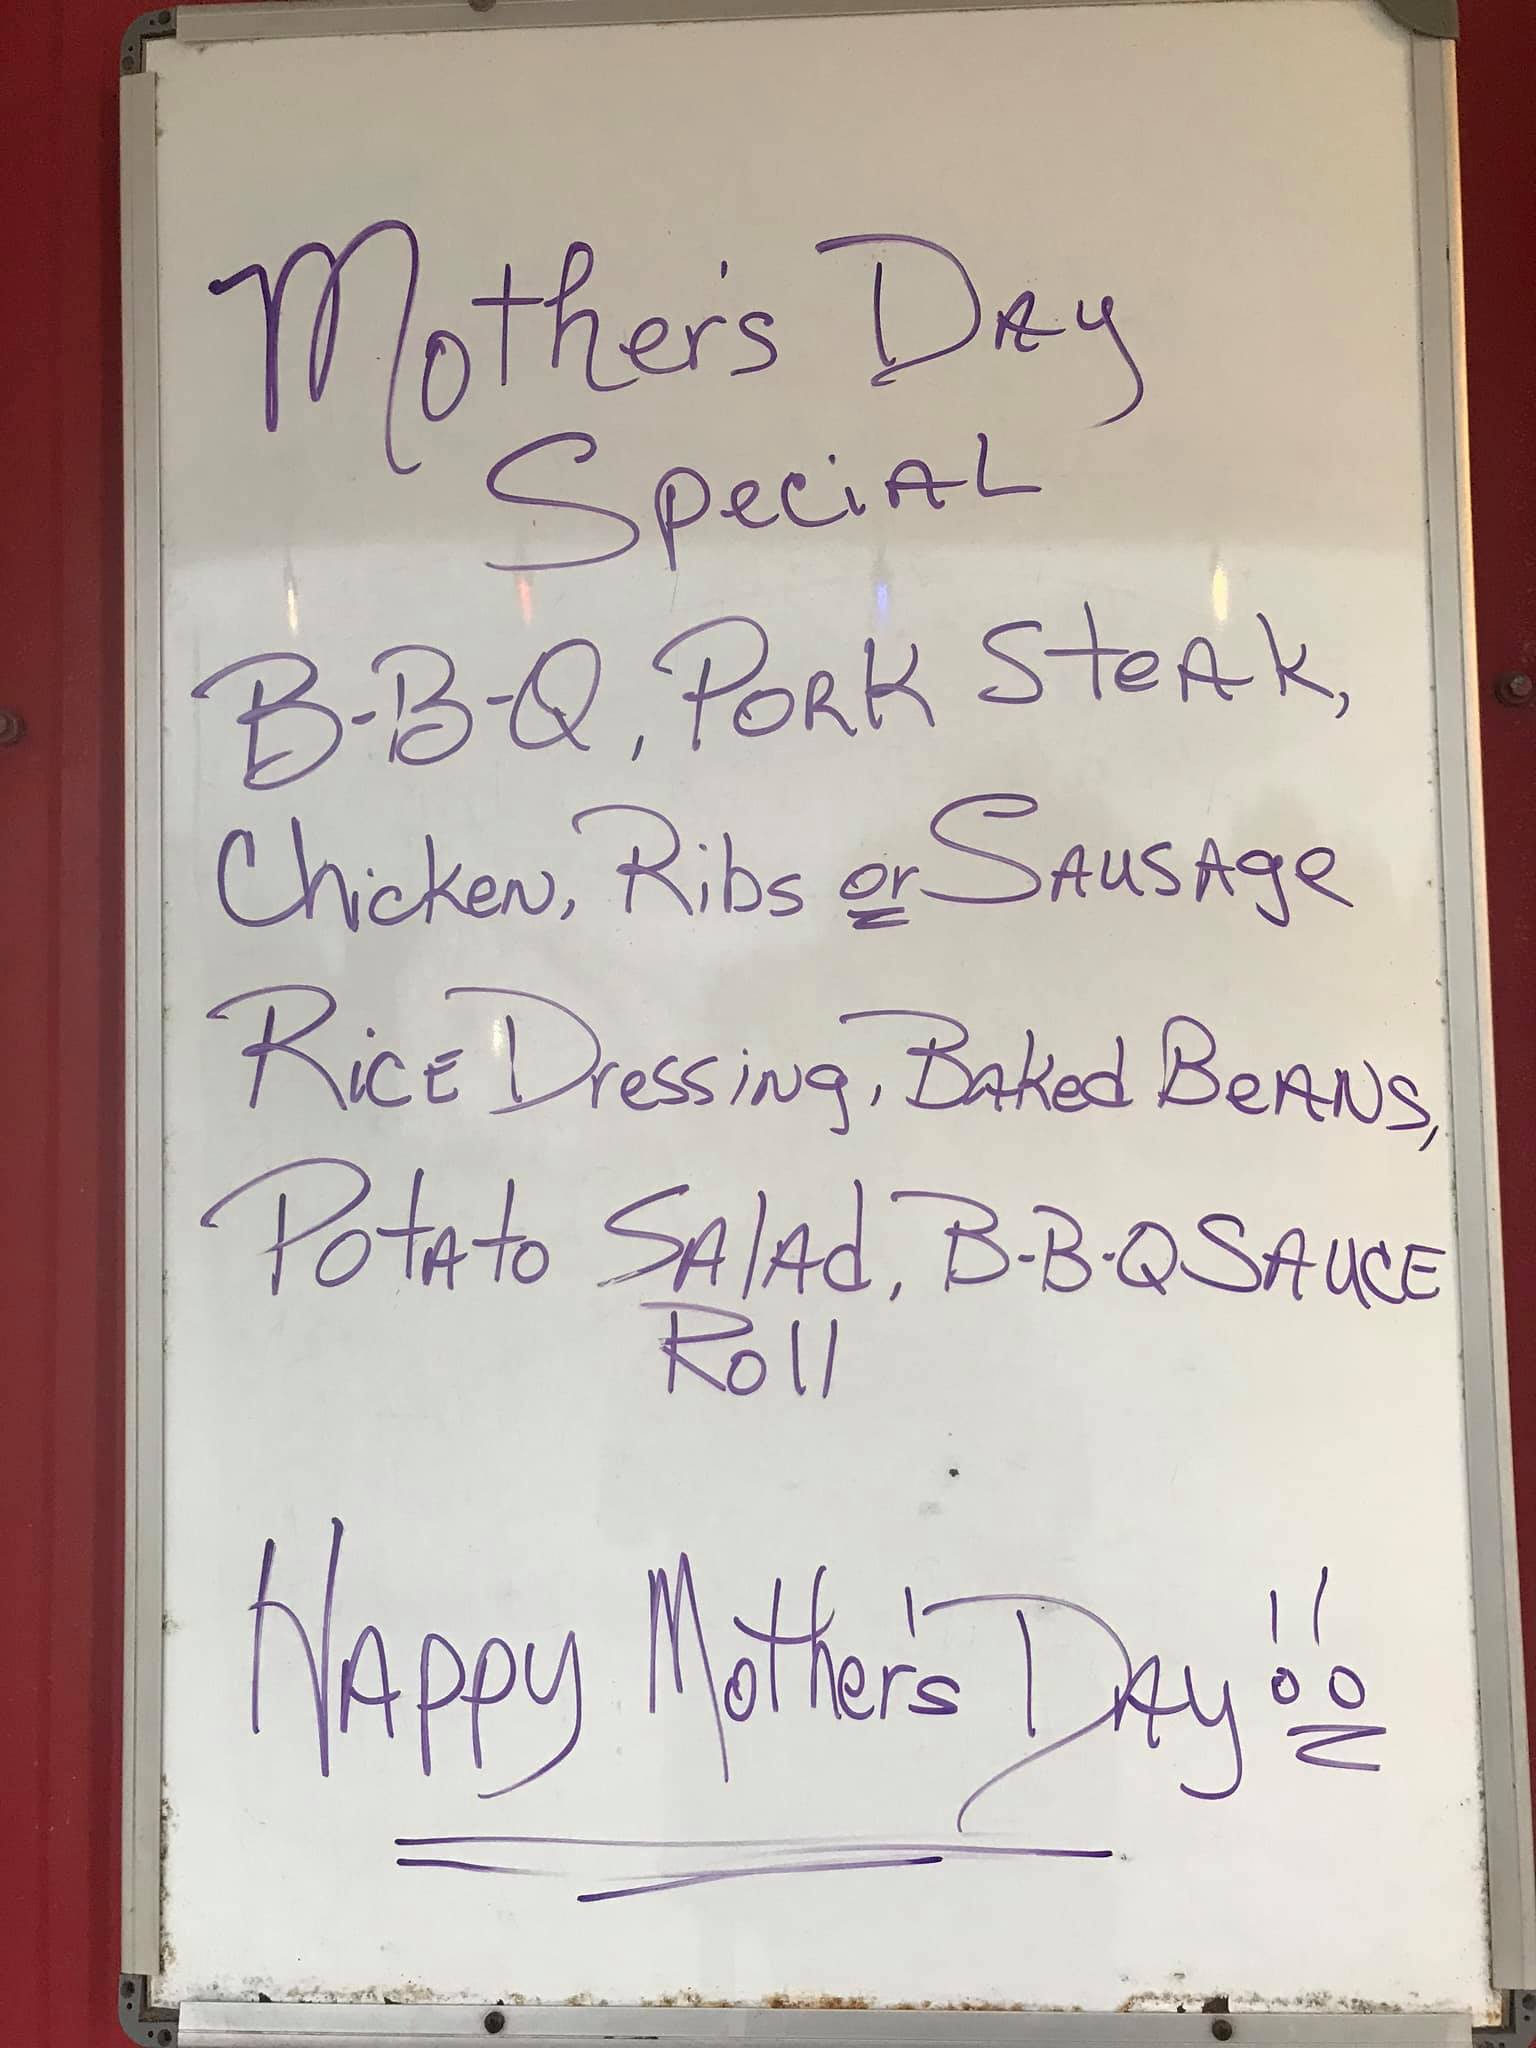 Mother's Day
Special
B-B-Q, Pork Steak,
Chicken, Ribs or Sausage
Rice Dressing, Baked Beans,
Potato Salad, B-B-Q Sauce
Roll
Happy Mother's Day!!